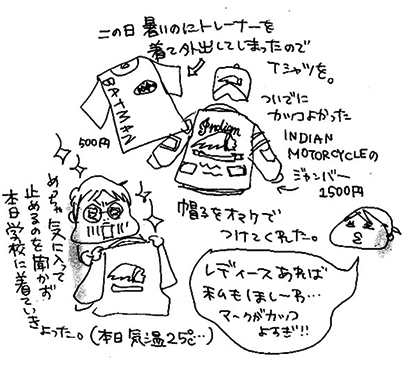 この日 暑いのにトレーナーを
着て外出してしまったので
Tシャツを。
BATMAN
500円
Indian
ついでに
カッコよかった
INDIAN
MOTORCYCLEの
ジャンパー
1500円
帽子をオマケで
つけてくれた。
めっちゃ気に入って
止めるのを聞かず
本日学校に着ていき
よった。(本日気温25℃…)
レディースあれば
私もほしーわ…
マークがカッコ
よすぎ!!